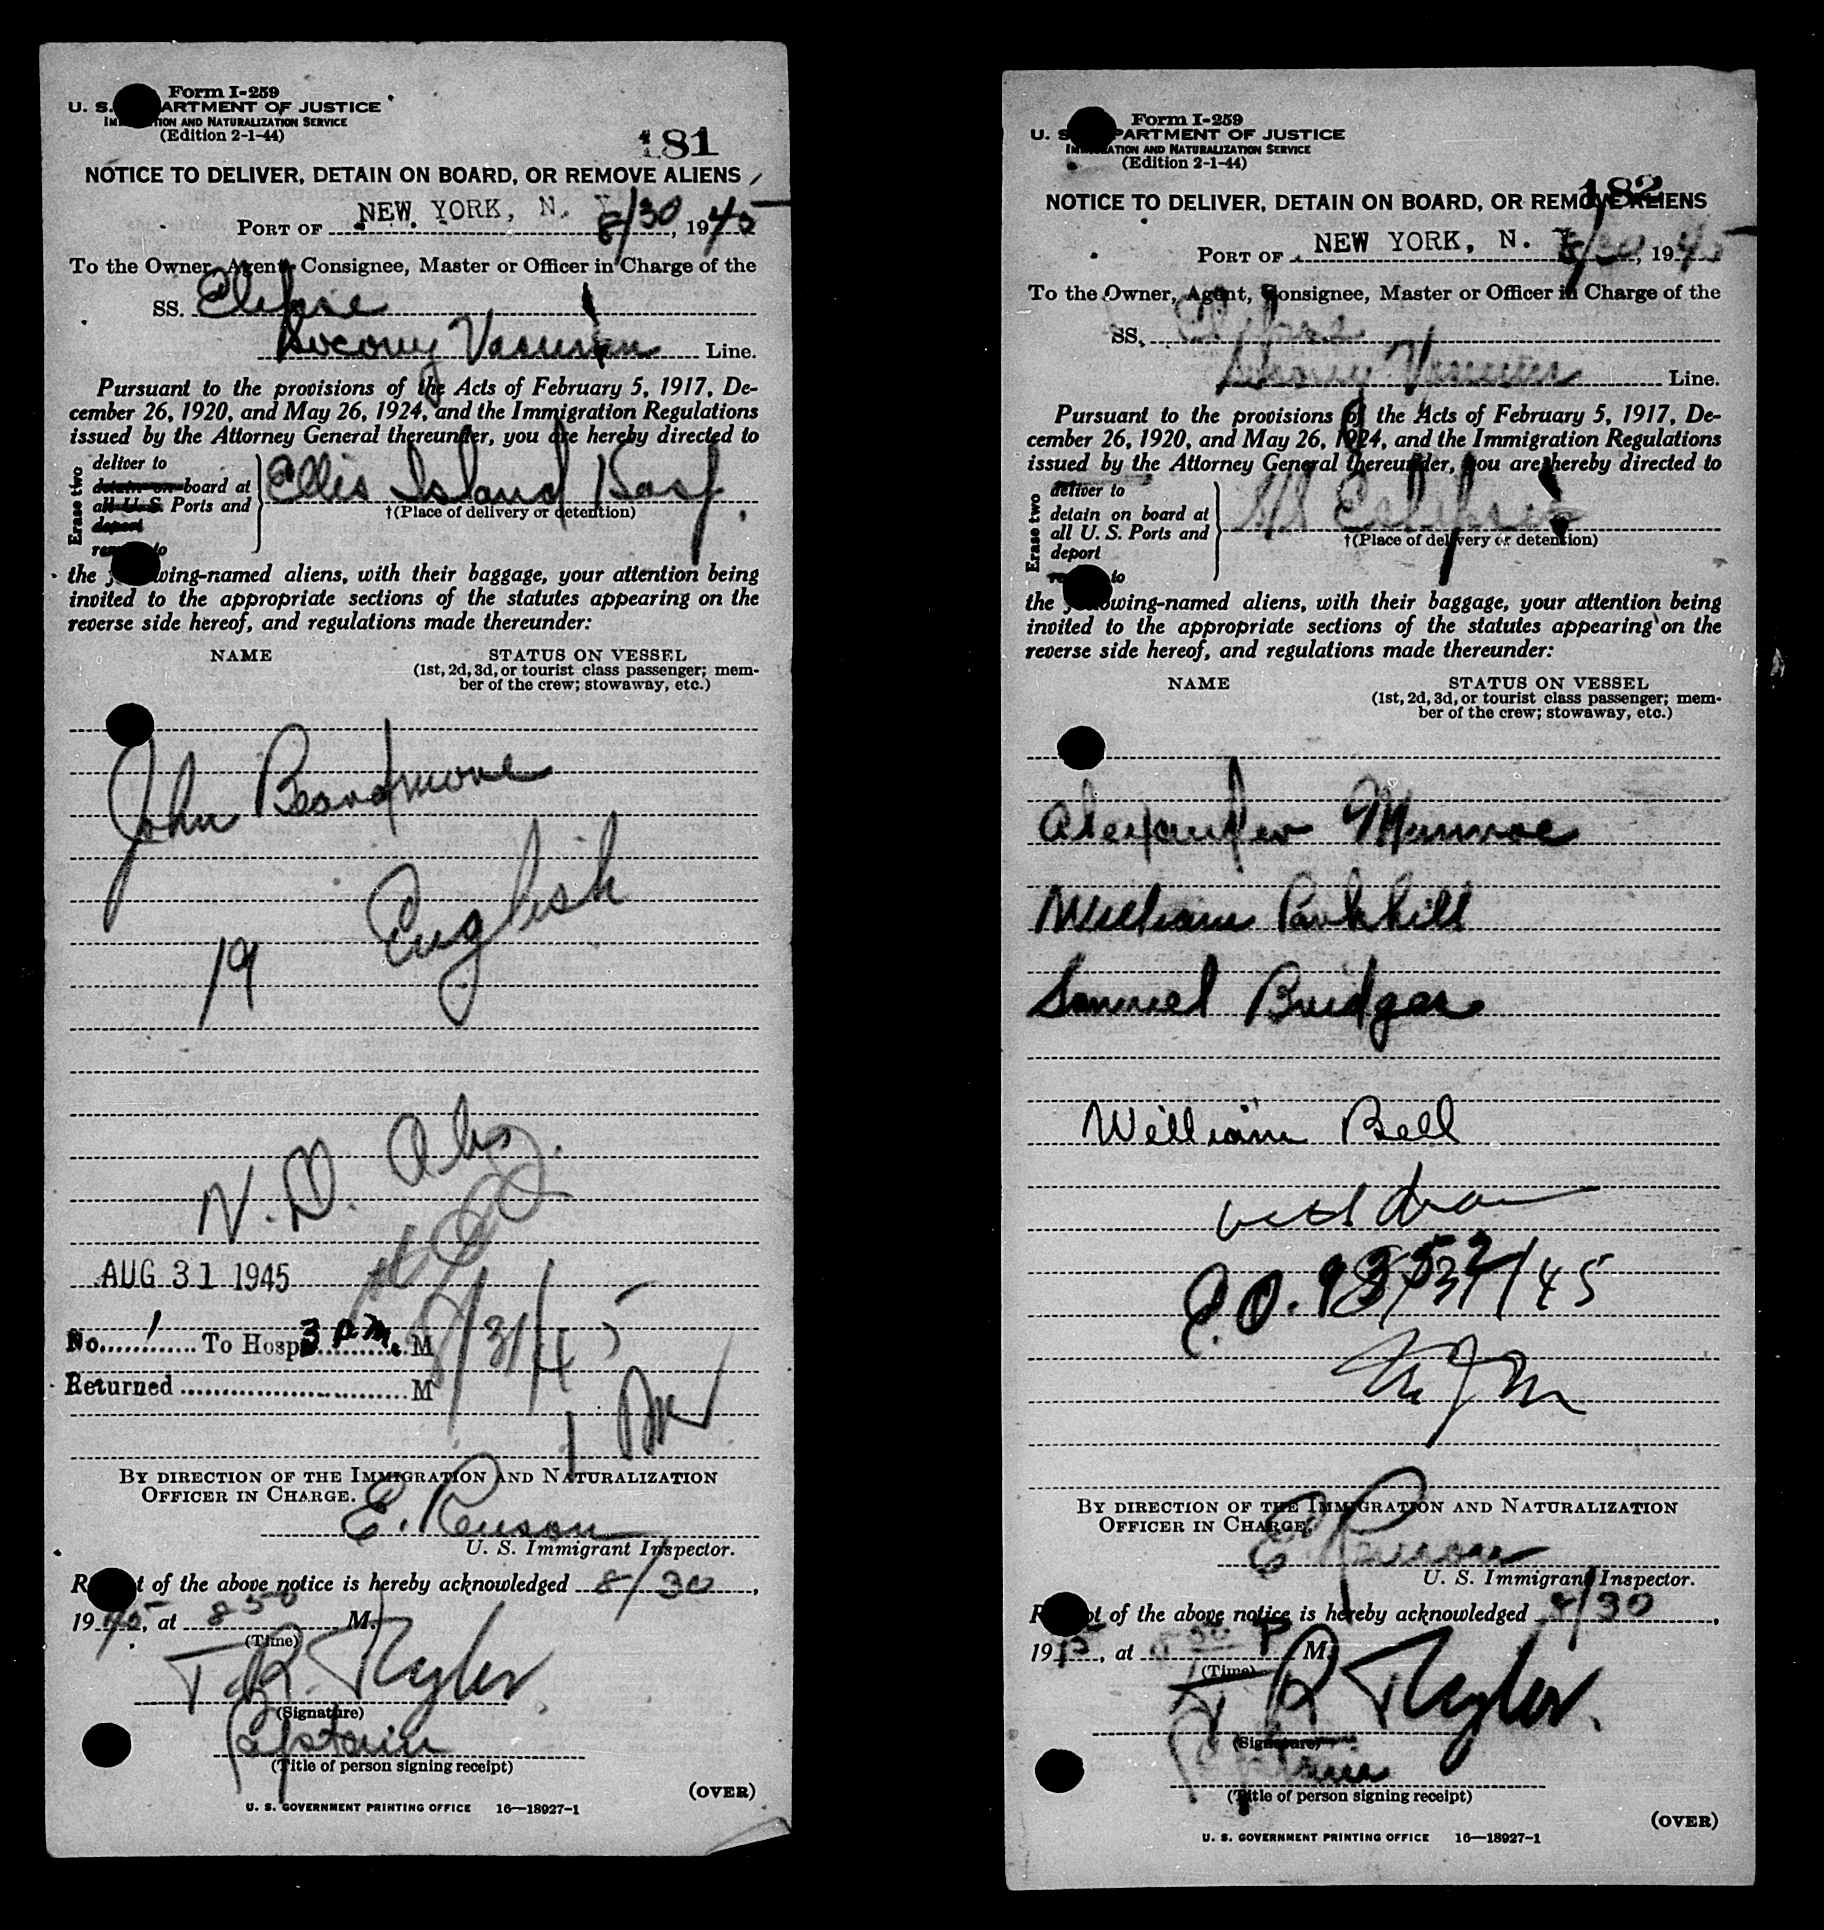 Form I-259
U. S. DEPARTMENT OF JUSTICE
IMMIGRATION AND NATURALIZATION SERVICE
(Edition 2-1-44)
181
NOTICE TO DELIVER, DETAIN ON BOARD, OR REMOVE ALIENS
PORT OF NEW YORK, N. Y. 8/30, 1945
To the Owner, Agent, Consignee, Master or Officer in Charge of the
SS.
Socony Vacuum Line.
Pursuant to the provisions of the Acts of February 5, 1917, De-
cember 26, 1920, and May 26, 1924, and the Immigration Regulations
issued by the Attorney General thereunder, you are hereby directed to
Erase two
deliver to
detain on board at
all U. S. Ports and
deport
remove to
Ellis Island
†(Place of delivery or detention)
the following-named aliens, with their baggage, your attention being
invited to the appropriate sections of the statutes appearing on the
reverse side hereof, and regulations made thereunder:
NAME STATUS ON VESSEL
(1st, 2d, 3d, or tourist class passenger; mem-
ber of the crew; stowaway, etc.)
John Beardmore
19 English
AUG 31 1945
No. 1 To Hosp. 3 P.M. M
8/31/45
Returned M
BY DIRECTION OF THE IMMIGRATION AND NATURALIZATION
OFFICER IN CHARGE.
U. S. Immigrant Inspector.
Receipt of the above notice is hereby acknowledged 8/30,
1945, at 850 M.
(Time)
T. R.
(Signature)
Captain
(Title of person signing receipt)
(OVER)
U. S. GOVERNMENT PRINTING OFFICE 16—18927-1
Form I-259
U. S. DEPARTMENT OF JUSTICE
IMMIGRATION AND NATURALIZATION SERVICE
(Edition 2-1-44)
182
NOTICE TO DELIVER, DETAIN ON BOARD, OR REMOVE ALIENS
PORT OF NEW YORK, N. Y. 8/30, 1945
To the Owner, Agent, Consignee, Master or Officer in Charge of the
SS.
Socony Vacuum Line.
Pursuant to the provisions of the Acts of February 5, 1917, De-
cember 26, 1920, and May 26, 1924, and the Immigration Regulations
issued by the Attorney General thereunder, you are hereby directed to
Erase two
deliver to
detain on board at
all U. S. Ports and
deport
remove to
†(Place of delivery or detention)
the following-named aliens, with their baggage, your attention being
invited to the appropriate sections of the statutes appearing on the
reverse side hereof, and regulations made thereunder:
NAME STATUS ON VESSEL
(1st, 2d, 3d, or tourist class passenger; mem-
ber of the crew; stowaway, etc.)
Alexander Munroe
William Parkhill
Samuel Bridges
William Bell
BY DIRECTION OF THE IMMIGRATION AND NATURALIZATION
OFFICER IN CHARGE.
U. S. Immigrant Inspector.
Receipt of the above notice is hereby acknowledged 8/30,
1945, at P M.
(Time)
T R
(Signature)
Captain
(Title of person signing receipt)
(OVER)
U. S. GOVERNMENT PRINTING OFFICE 16—18927-1